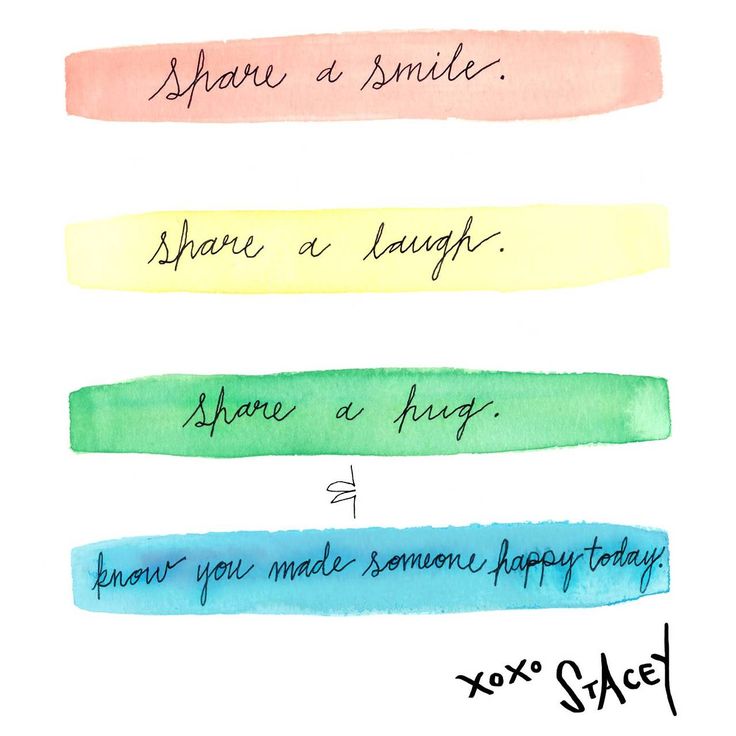 share a smile.
share a laugh.
share a hug.
&
know you made someone happy today.
xoxo STACEY